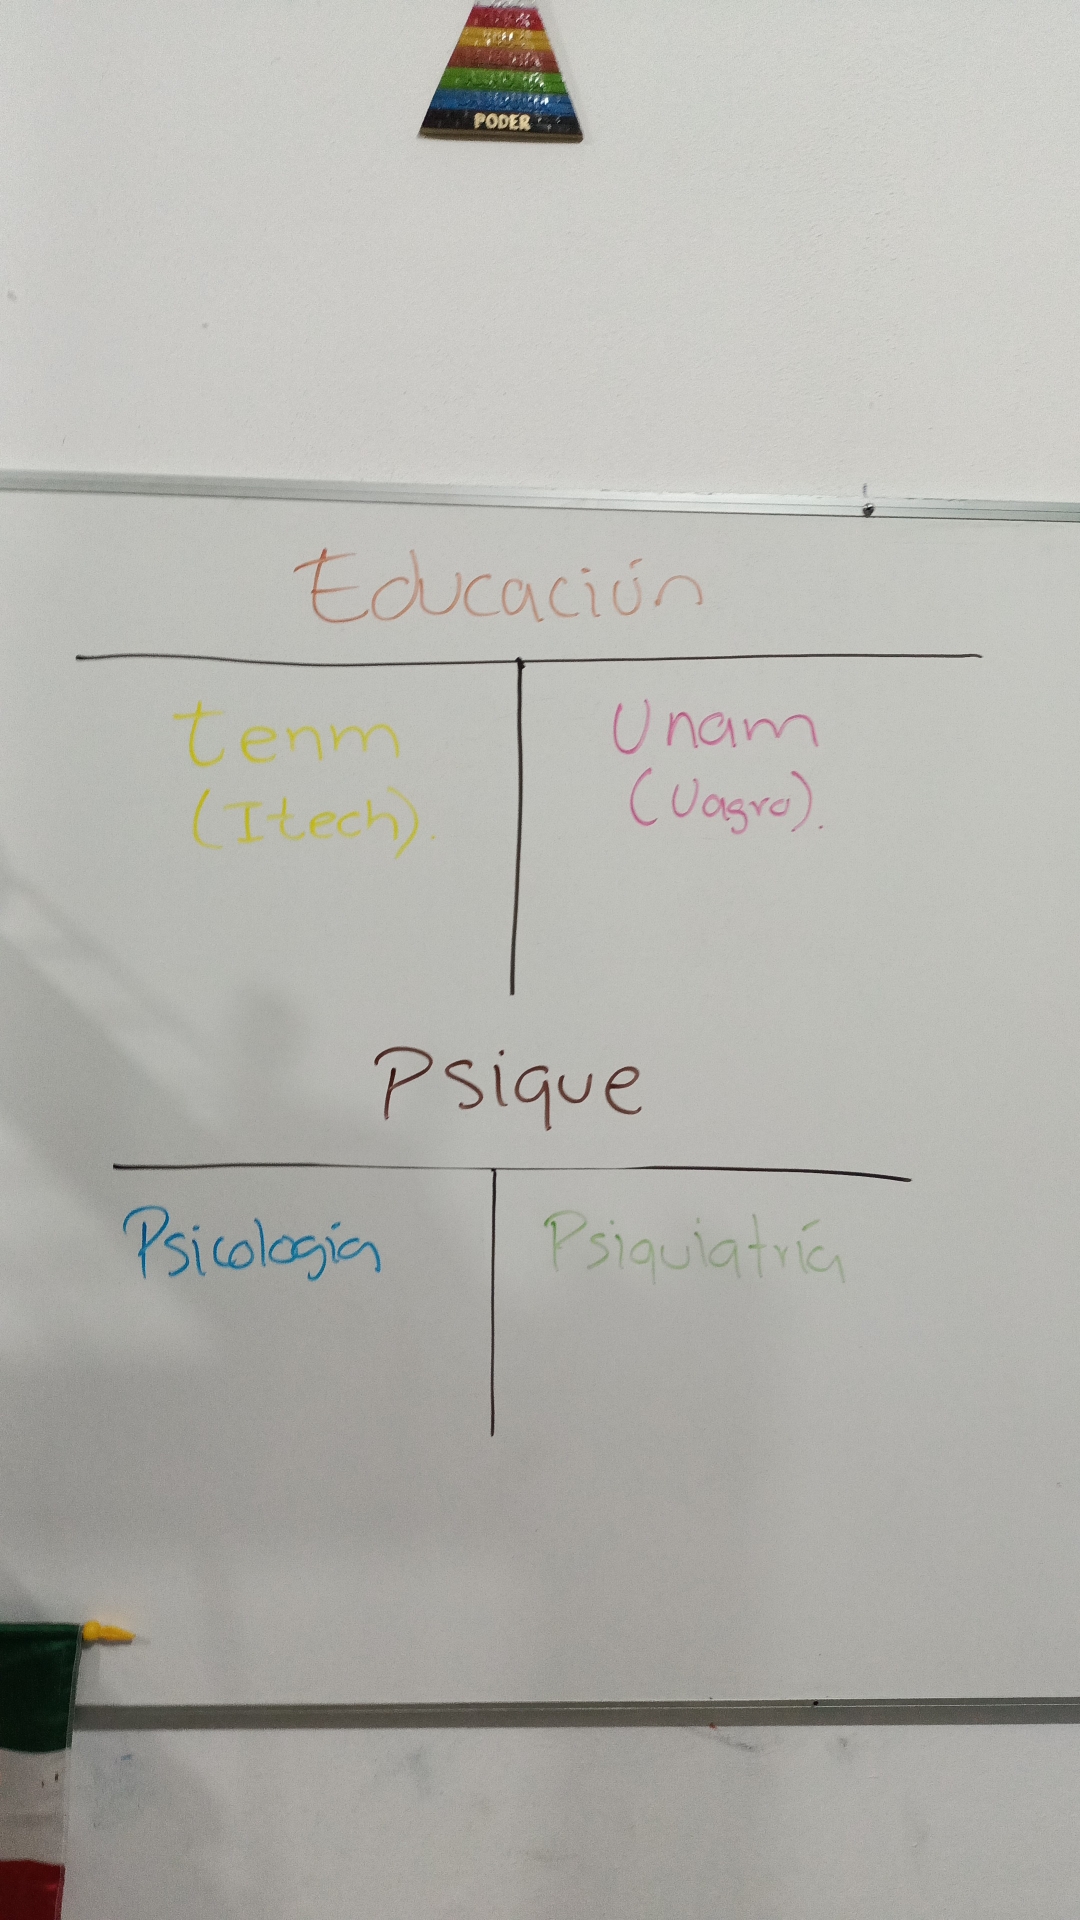 PODER
Educación
tenm
Unam
(Itech).
(Uagro).
Psique
Psicologia
Psiquiatría